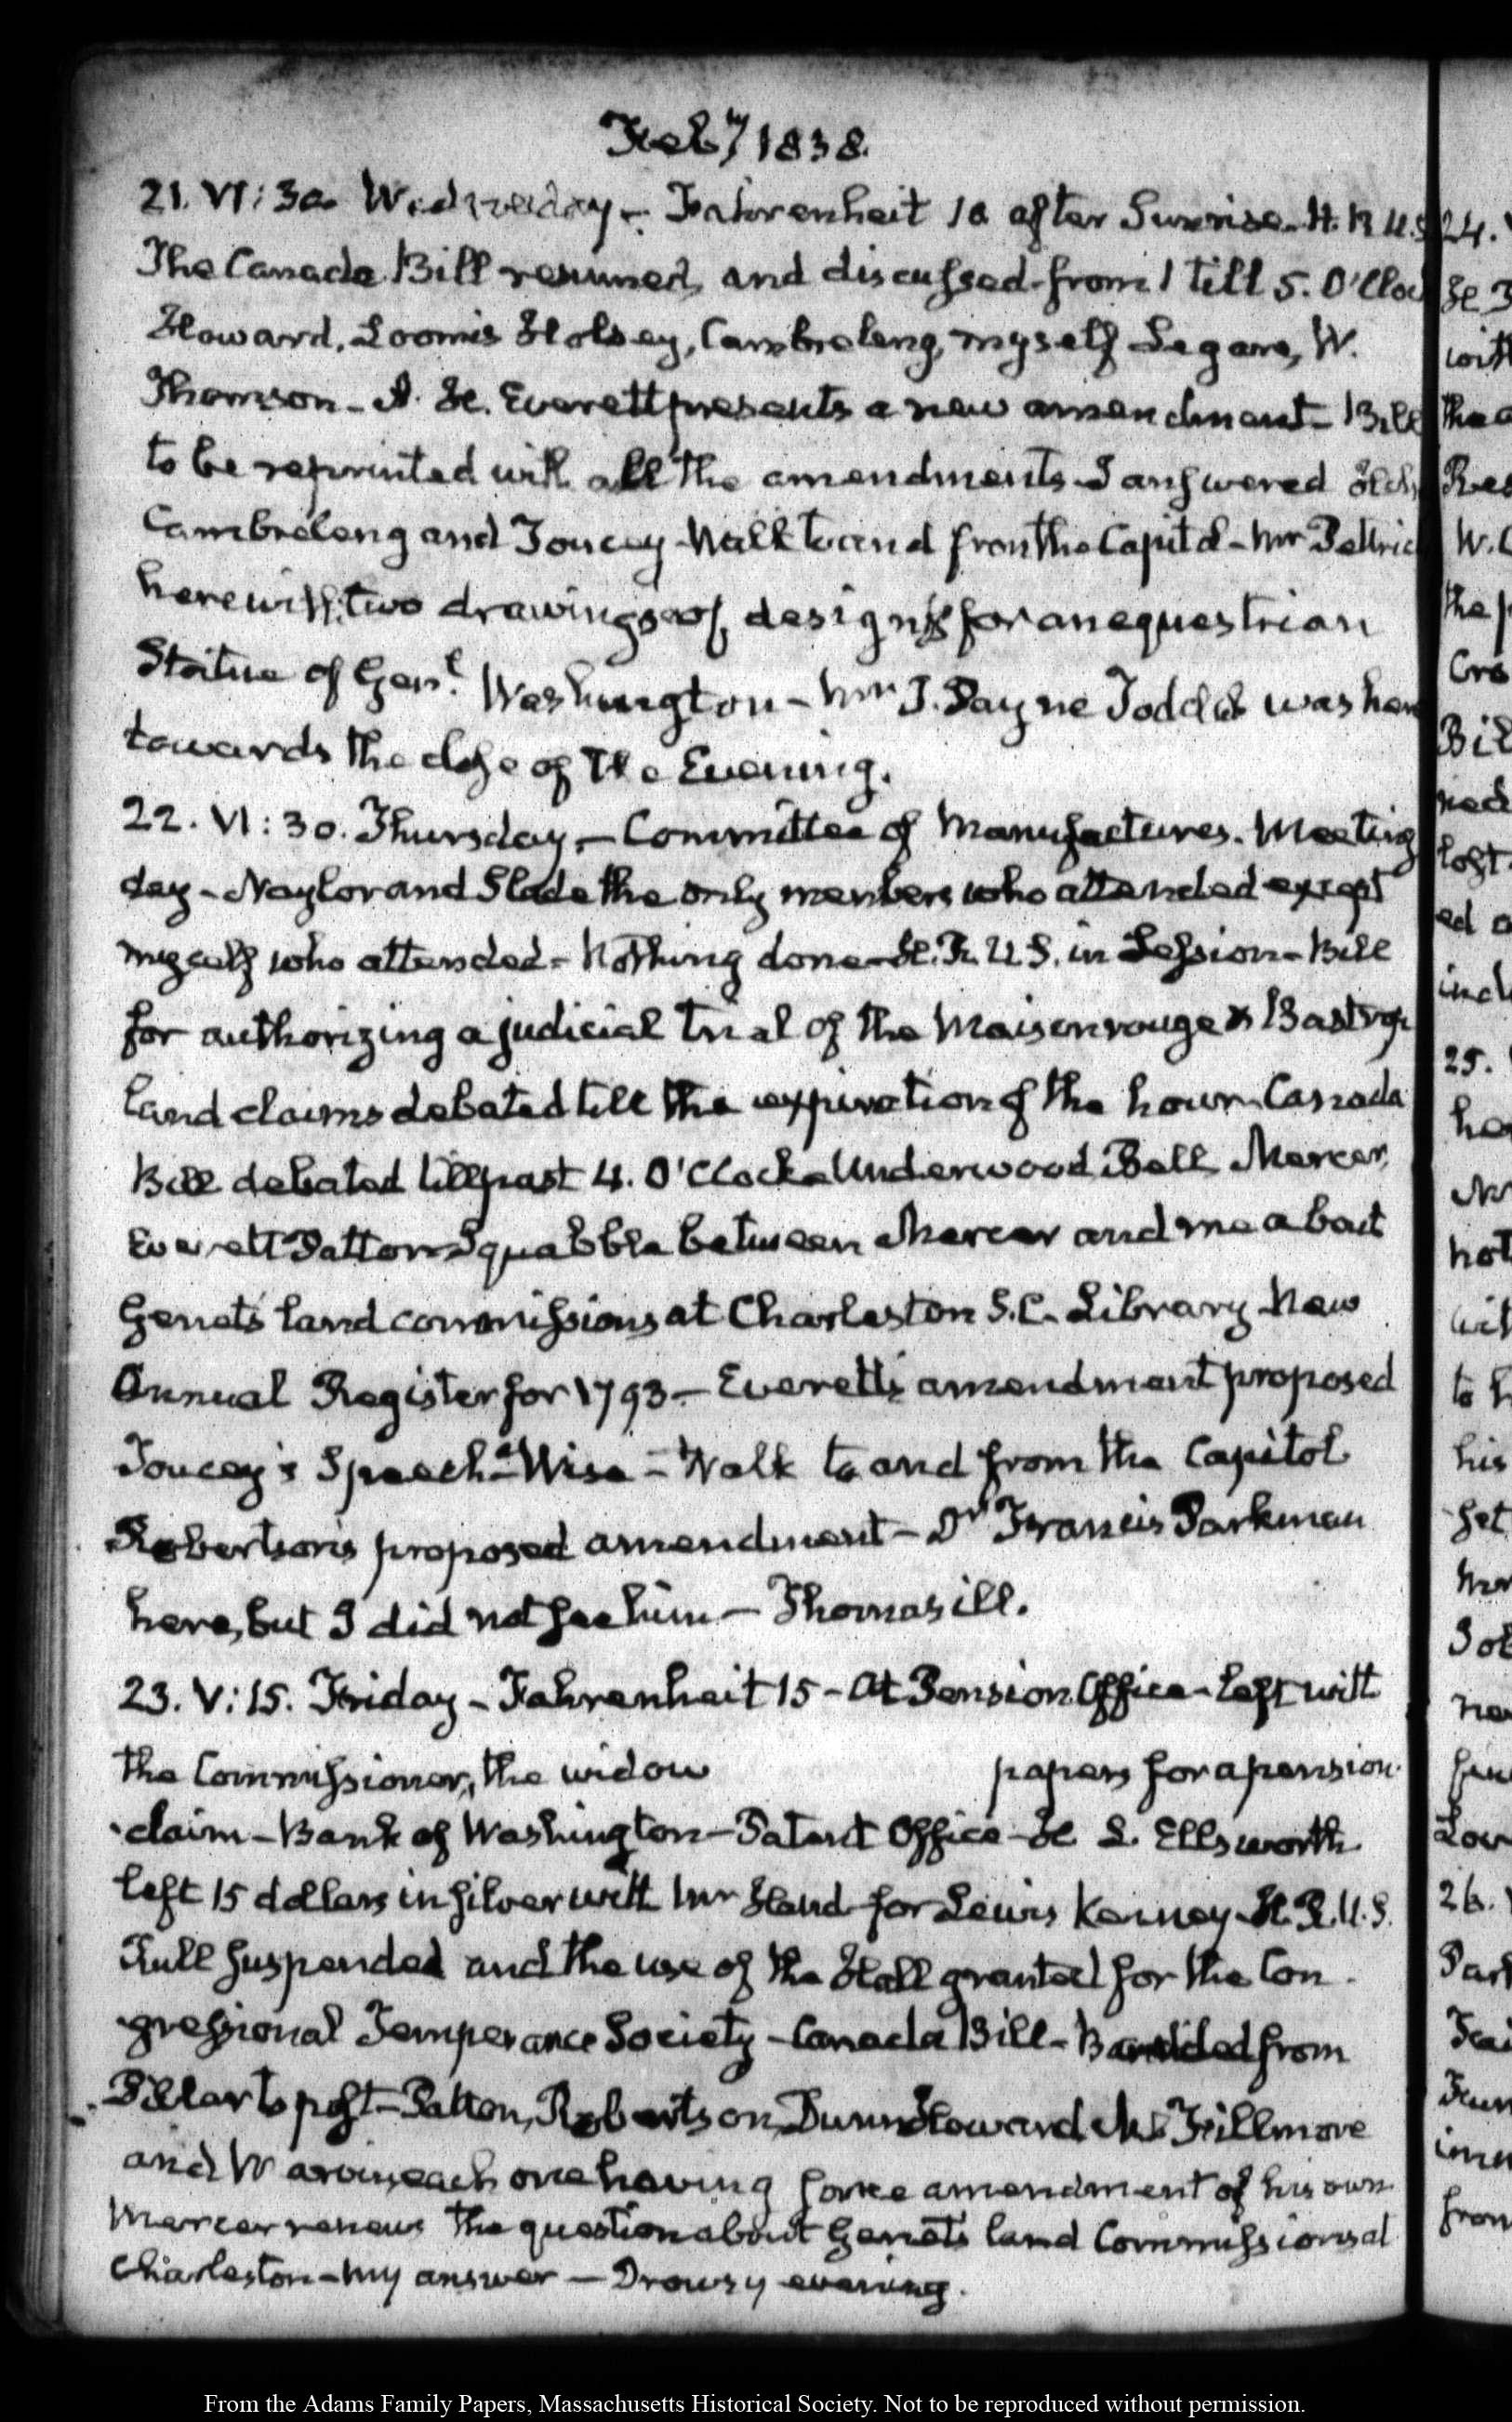 Feby 1838.
21. VI: 30. Wednesday. Fahrenheit 10 after Sunrise. H. R U.S
The Canada Bill resumed, and discussed from 1 till 5. O'Cloc
Howard, Loomis Holsey, Cambreleng, myself Legare, W.
Thomson - A. H. Everett presents a new amendment - Bill
to be reprinted with all the amendments - I answered
Cambreleng and Toucey - Walk to and from the Capitol - Mr Pettric
here with two drawings of designs for an equestrian
Statue of Genl. Washington - Mr J. Payne Todd was here
towards the close of the Evening.
22. VI: 30. Thursday. - Committee of Manufactures. Meeting
day - Naylor and Slade the only members who attended except
myself who attended - Nothing done - H. R. U S. in Session - Bill
for authorizing a judicial trial of the Maisonrouge & Bastrop
land claims debated till the expiration of the hour. Canada
Bill debated till past 4. O'Clock - Underwood Bell Mercer,
Everett Patton - Squabble between Mercer and me about
Genet's land commissions at Charleston S.C. Library New
Annual Register for 1793 - Everett's amendment proposed
Toucey's Speech - Wise - Walk to and from the Capitol
Robertson's proposed amendment - Dr Francis Parkman
here, but I did not see him - Thomas ill.
23. V: 15. Friday - Fahrenheit 15 - At Pension Office - left with
the Commissioner, the widow papers for a pension
claim - Bank of Washington - Patent Office - H L. Ellsworth
left 15 dollars in silver with Mr Hand for Lewis Kerney - H. R. U.S.
Rule suspended and the use of the Hall granted for the Con
gressional Temperance Society - Canada Bill - Bandied from
Pillar to post - Patton, Robertson, Dunn Howard Fillmore
and W each one having some amendment of his own
Mercer renews the question about Genet's land Commissions at
Charleston - my answer - Drowsy evening.
24.
25.
26.